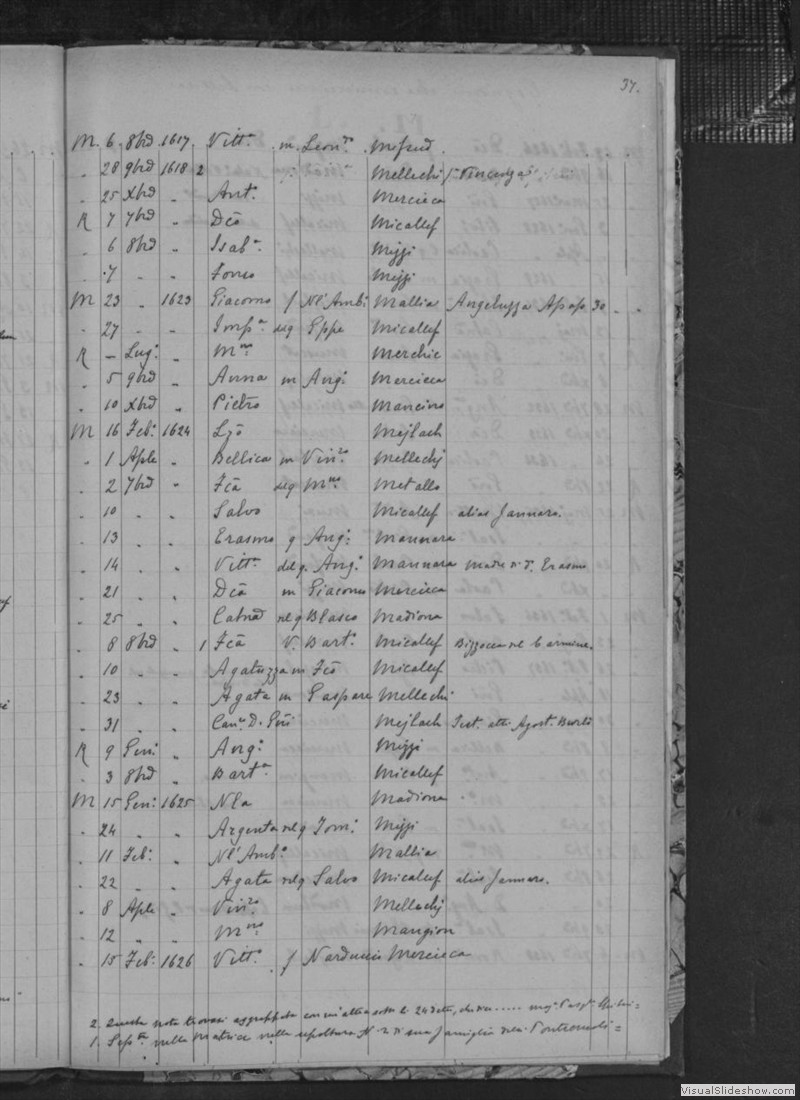 37.
M. 6 8brd 1617 Vitt.a m. Leon.do Mifsud.
. 28 9brd 1618 2 Mellechi
. 25 Xbrd " Ant.a Mercieca
R 7 7brd " Dca Micallef
. 6 8brd " Isab.a Mizzi
. 7 " " Mizzi
M 23 " 1623 Giacomo f Nl'Ambr. Mallia Angeluzza Apap 30
. 27 " " Imp.a del q Gppe Micallef
R – Lug: " M.no
. 5 9brd " Anna m Ang: Mercieca
. 10 Xbrd " Pietro
M 16 Feb: 1624 Mejlach
. 1 Aple " Bellica m Vin.zo Mellechj
. 2 7brd " Fca del q M.no Metallo
. 10 " " Salvo Micallef alias Jannaro.
. 13 " " Erasmo q Ang: Mannara
. 14 " " Vitt.a del q. Ang: Mannara madre di d. Erasmo
. 21 " " Dca m Giacomo Mercieca
. 25 " " rel q Blasco Madiona
. 8 8brd " 1 Fca V. Bart.o Micallef Bizzocca
. 10 " " Agatuzza m Fco Micallef
. 23 " " Agata m Gaspare Mellechi
. 31 " " Can.co D. Gni Mejlach Test. atti Agost.
R 9 Gen: " Ang: Mizzi
. 3 8brd " Bart.a Micallef
M 15 Gen: 1625 Nla Madiona
. 24 " " Argenta rel q Mizzi
. 11 Feb: " Nl'Amb.o Mallia
. 22 " " Agata rel q Salvo Micallef alias Jannaro.
. 8 Aple " Vin.zo Mellechj
. 12 " " M.no Mangion
. 15 Feb: 1626 Vitt.a f Narduccio Mercieca
2. Questa nota trovasi aggruppata con un'altra sotto li 24 detto, che dice .....
1. Sep.ta nella Matrice nella sepoltura N. 2 di sua famiglia
VisualSlideshow.com